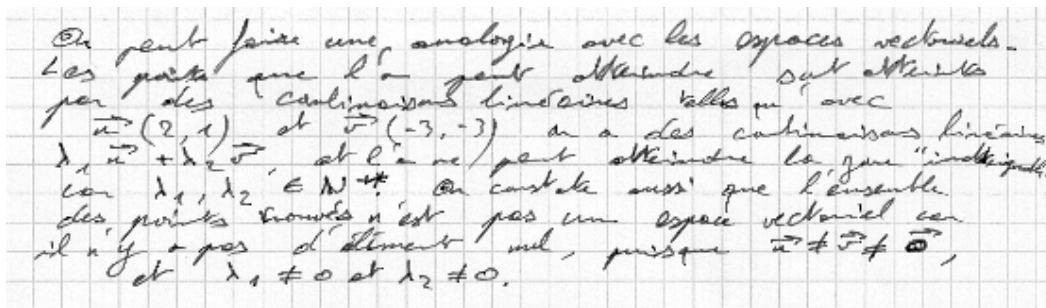 On peut faire une analogie avec les espaces vectoriels.
Les points que l'on peut atteindre sont atteints
par des combinaisons linéaires telles qu'avec
u⃗ (2, 1) et v⃗ (-3, -3) on a des combinaisons linéaires
λ₁ u⃗ + λ₂ v⃗ et l'on ne peut atteindre la zone "inatteignable"
car λ₁, λ₂ ∈ ℕ*. On constate aussi que l'ensemble
des points trouvés n'est pas un espace vectoriel car
il n'y a pas d'élément nul, puisque u⃗ ≠ v⃗ ≠ 0⃗,
et λ₁ ≠ 0 et λ₂ ≠ 0.